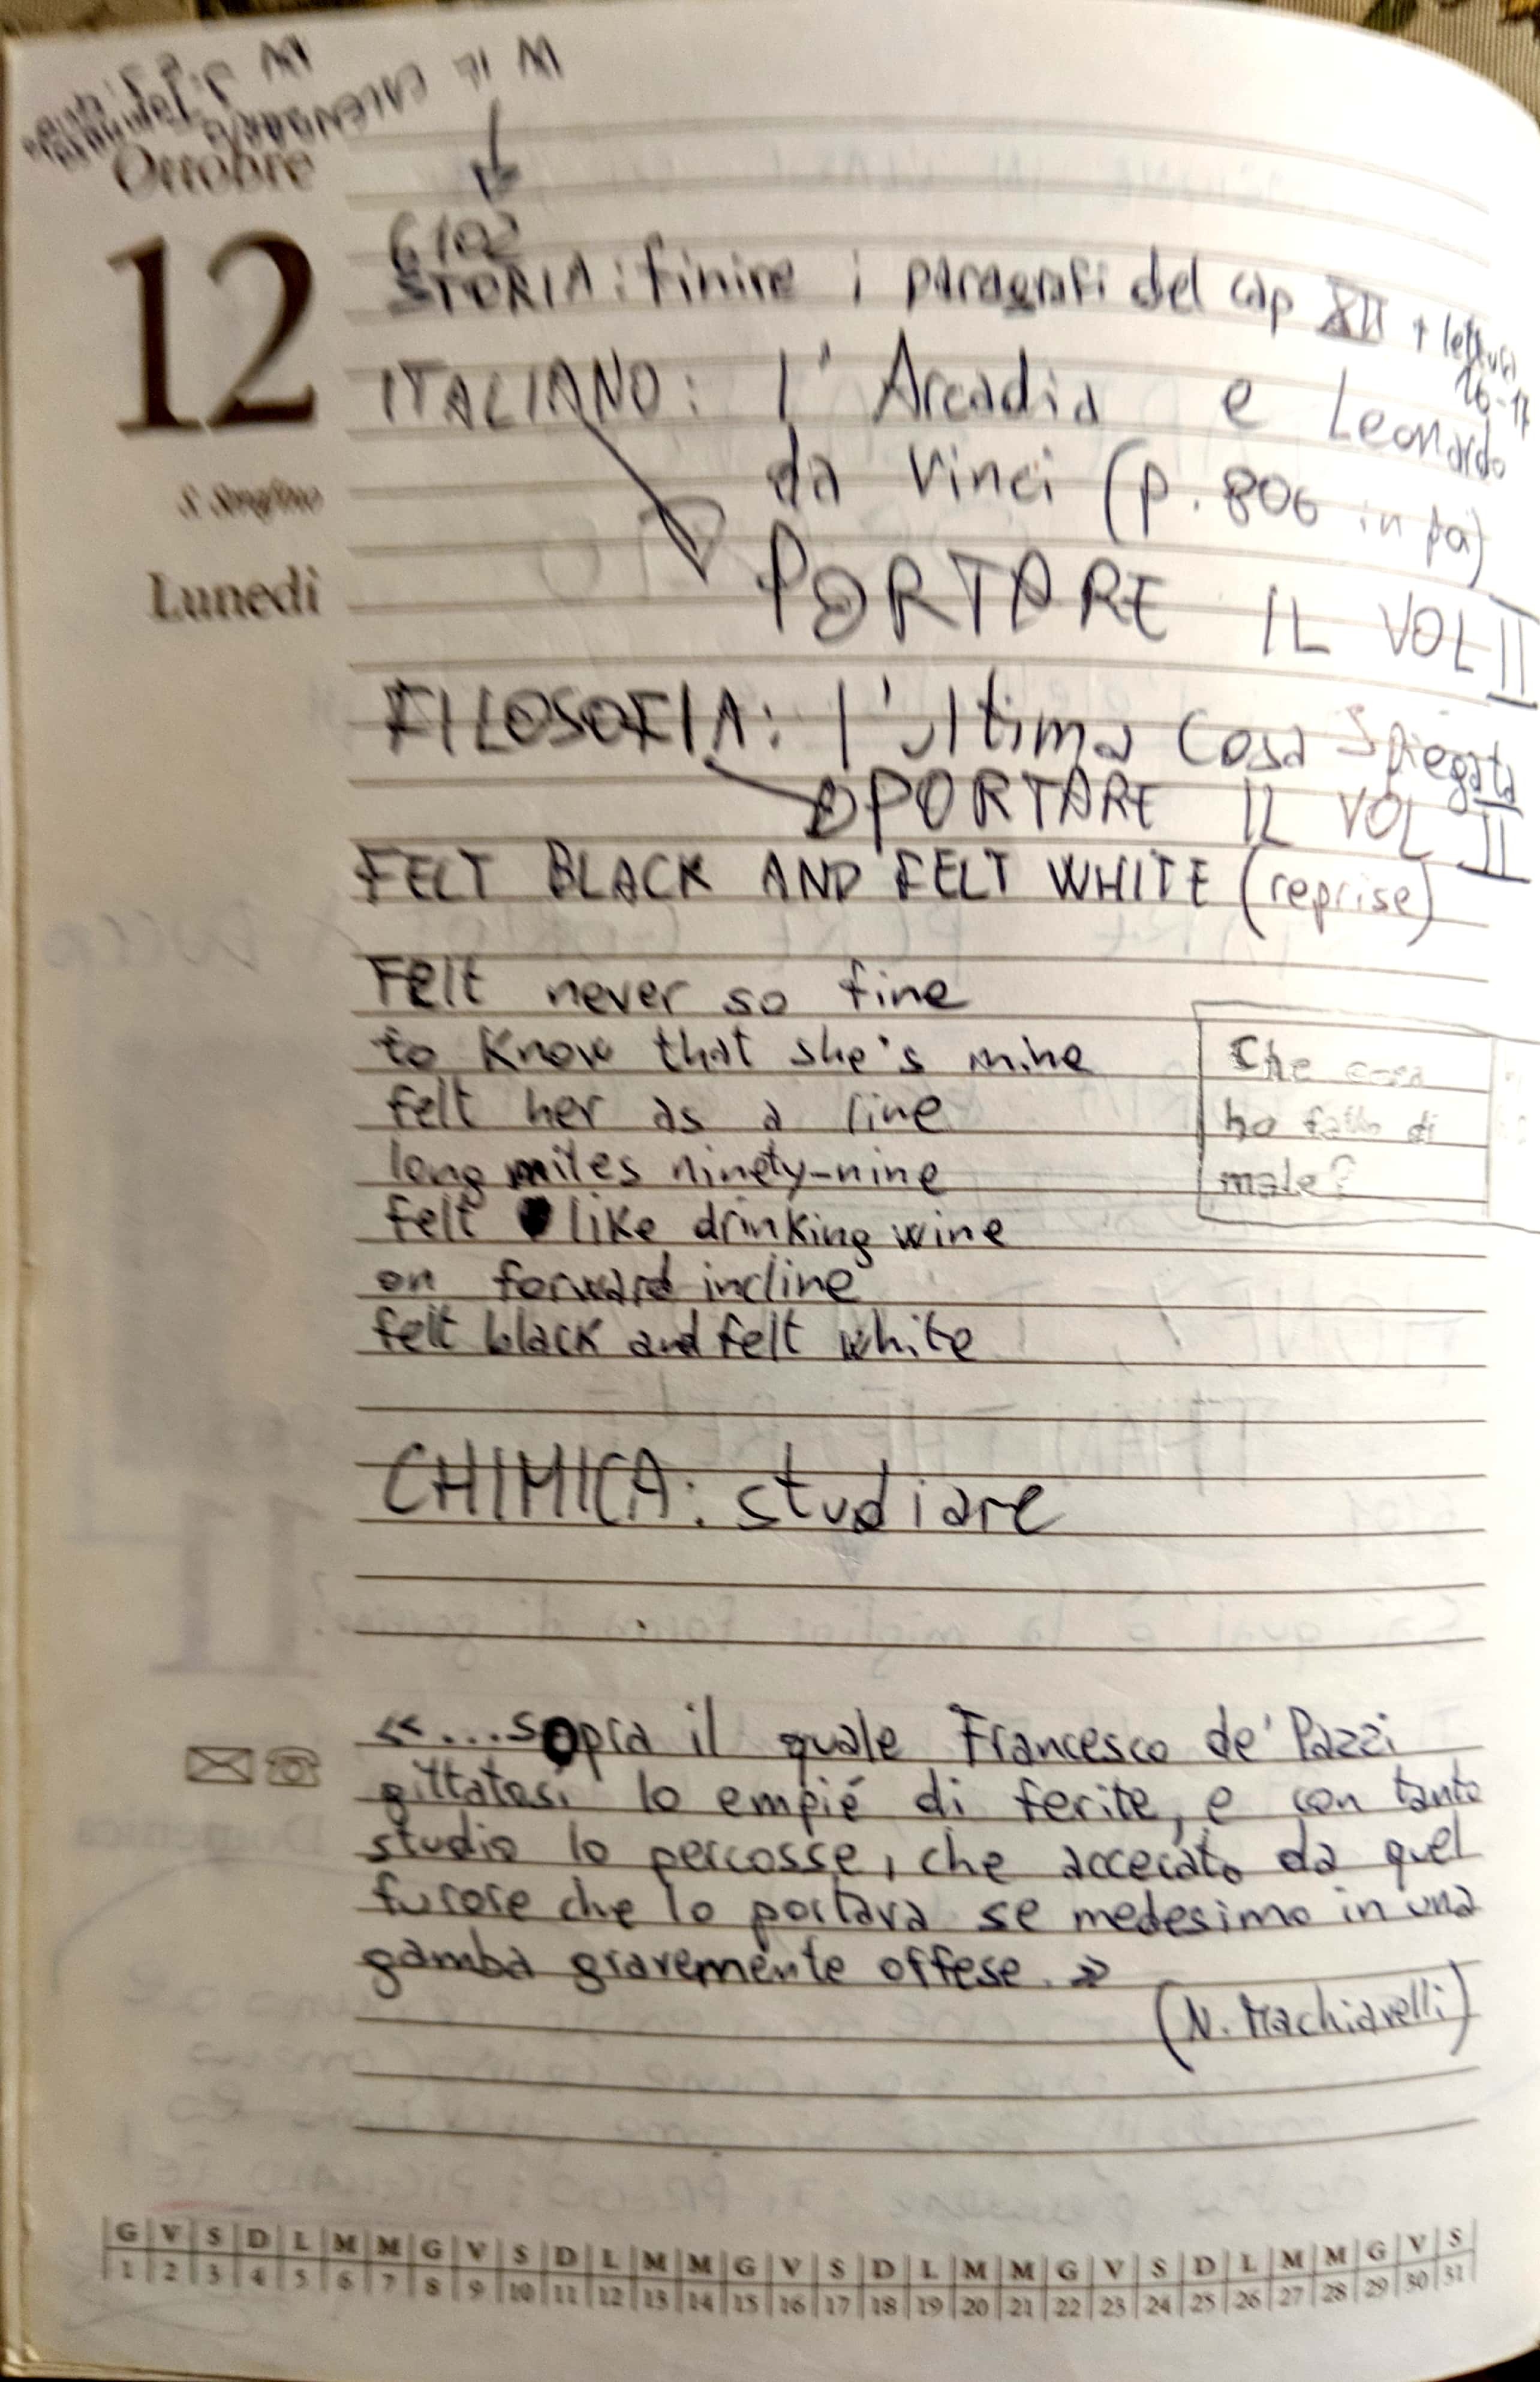 W IL CALENDARIO
Ottobre
12
S. Serafino
Lunedì
6102
STORIA: finire i paragrafi del cap XII + lettura
16-17
ITALIANO: l'Arcadia e Leonardo
da Vinci (p. 806 in poi)
PORTARE IL VOL II
FILOSOFIA: l'ultima cosa spiegata
PORTARE IL VOL II
FELT BLACK AND FELT WHITE (reprise)
Felt never so fine
to know that she's mine
felt her as a line
long miles ninety-nine
felt like drinking wine
on forward incline
felt black and felt white
Che cosa
ho fatto di
male?
CHIMICA: studiare
«...sopra il quale Francesco de' Pazzi
gittatosi lo empié di ferite, e con tanto
studio lo percosse, che accecato da quel
furore che lo portava se medesimo in una
gamba gravemente offese.»
(N. Machiavelli)
G V S D L M M G V S D L M M G V S D L M M G V S D L M M G V S
1 2 3 4 5 6 7 8 9 10 11 12 13 14 15 16 17 18 19 20 21 22 23 24 25 26 27 28 29 30 31